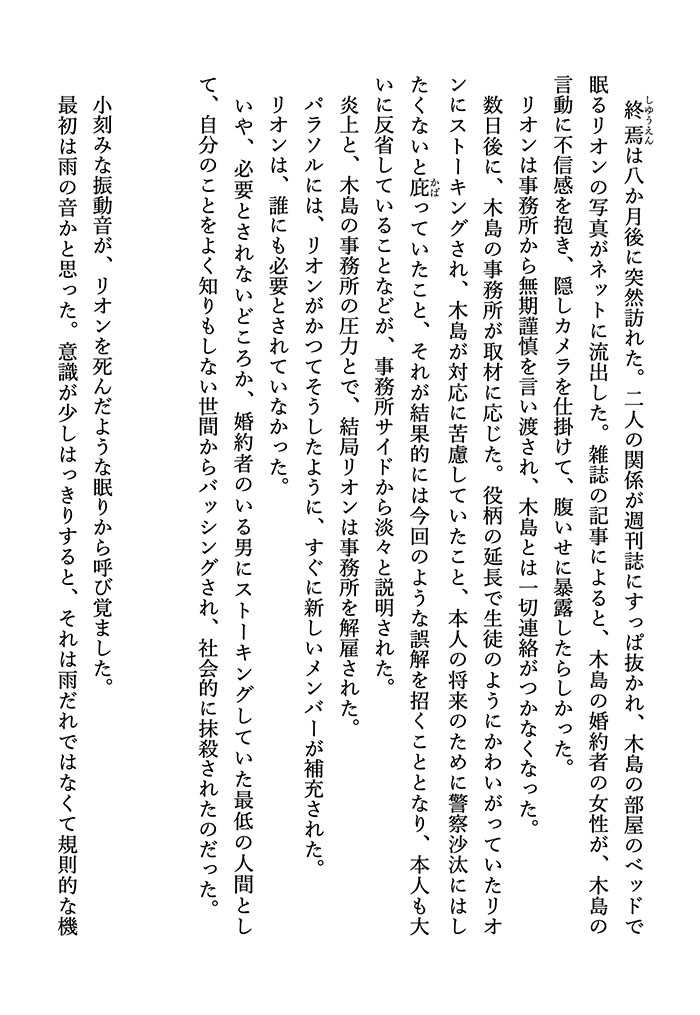 終焉は八か月後に突然訪れた。二人の関係が週刊誌にすっぱ抜かれ、木島の部屋のベッドで
しゅうえん
眠るリオンの写真がネットに流出した。雑誌の記事によると、木島の婚約者の女性が、木島の
言動に不信感を抱き、隠しカメラを仕掛けて、腹いせに暴露したらしかった。
リオンは事務所から無期謹慎を言い渡され、木島とは一切連絡がつかなくなった。
数日後に、木島の事務所が取材に応じた。役柄の延長で生徒のようにかわいがっていたリオ
ンにストーキングされ、木島が対応に苦慮していたこと、本人の将来のために警察沙汰にはし
たくないと庇っていたこと、それが結果的には今回のような誤解を招くこととなり、本人も大
かば
いに反省していることなどが、事務所サイドから淡々と説明された。
炎上と、木島の事務所の圧力とで、結局リオンは事務所を解雇された。
パラソルには、リオンがかつてそうしたように、すぐに新しいメンバーが補充された。
リオンは、誰にも必要とされていなかった。
いや、必要とされないどころか、婚約者のいる男にストーキングしていた最低の人間とし
て、自分のことをよく知りもしない世間からバッシングされ、社会的に抹殺されたのだった。
小刻みな振動音が、リオンを死んだような眠りから呼び覚ました。
最初は雨の音かと思った。意識が少しはっきりすると、それは雨だれではなくて規則的な機